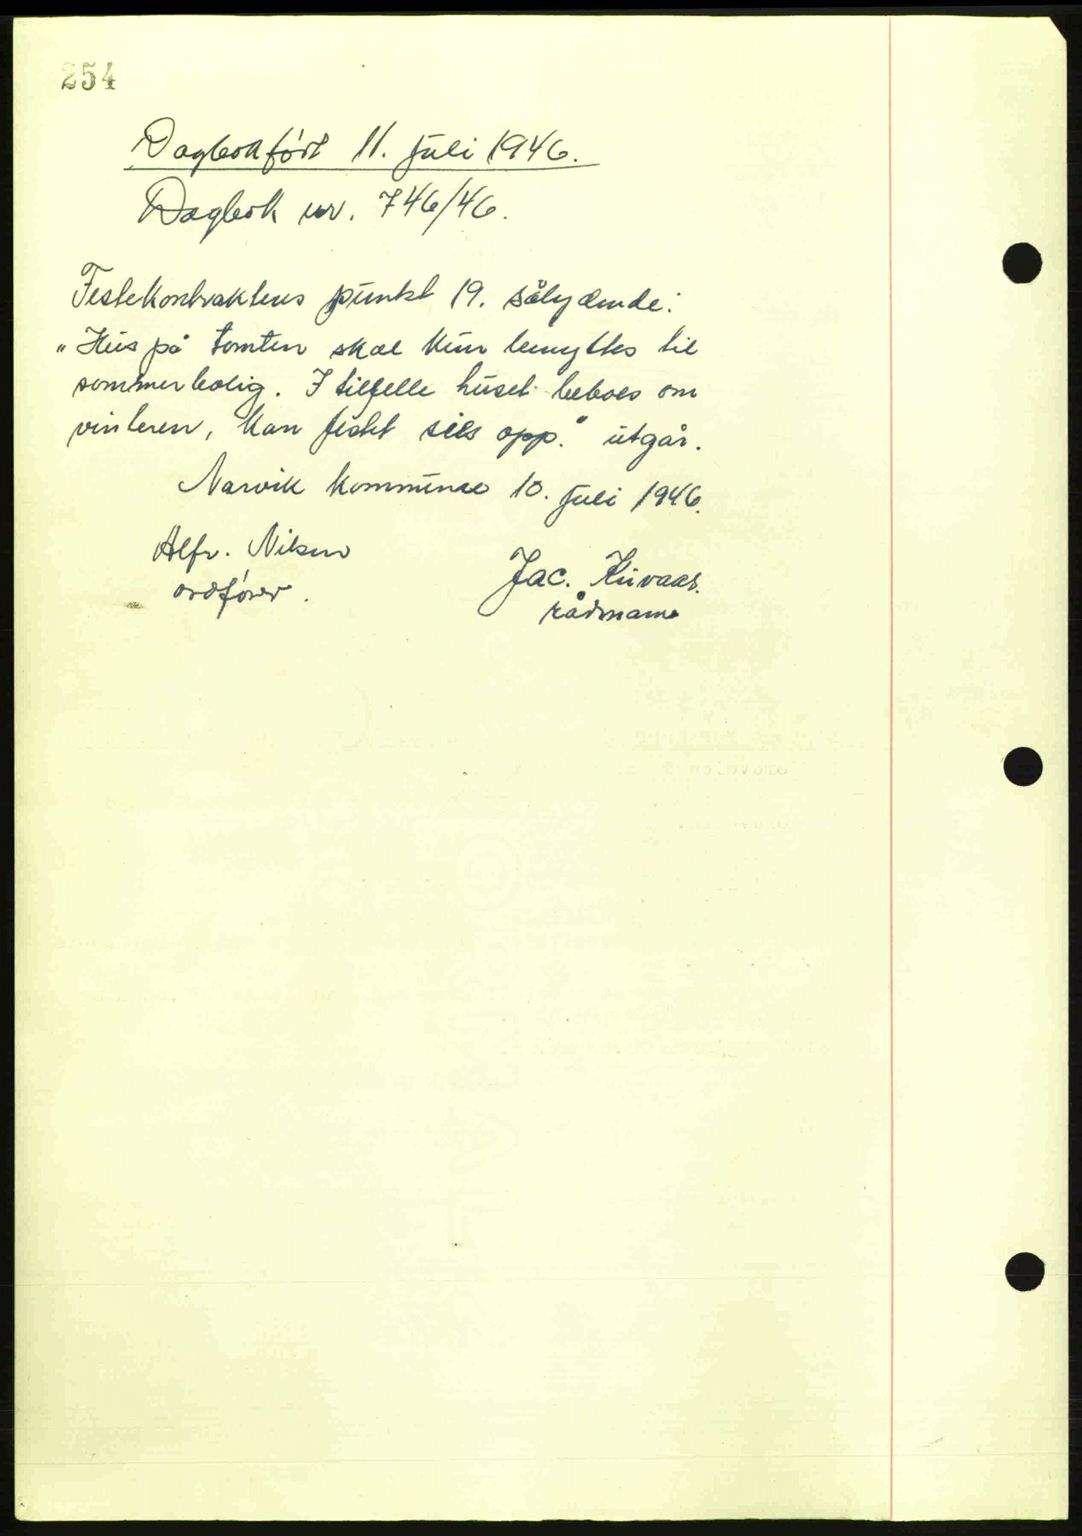 254
Dagbokført 11. juli 1946.
Dagbok nr. 746/46.
Festekontraktens punkt 19. sålydende:
"Hus på tomten skal kun benyttes til
sommerbolig. I tilfelle huset beboes om
vinteren, kan festet sies opp." utgår.
Narvik kommune 10. juli 1946.
Alfr. Nilsen
ordfører.
Jac. Kuvaas.
rådmann